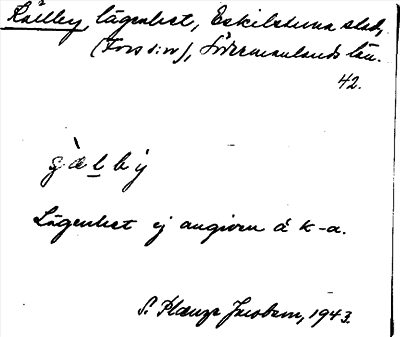 Kälby, lägenhet, Eskilstuna stad,
(Fors s:n), Södermanlands län.
42.
Lägenhet ej angiven å k-a.
S. Jacobson, 1943.